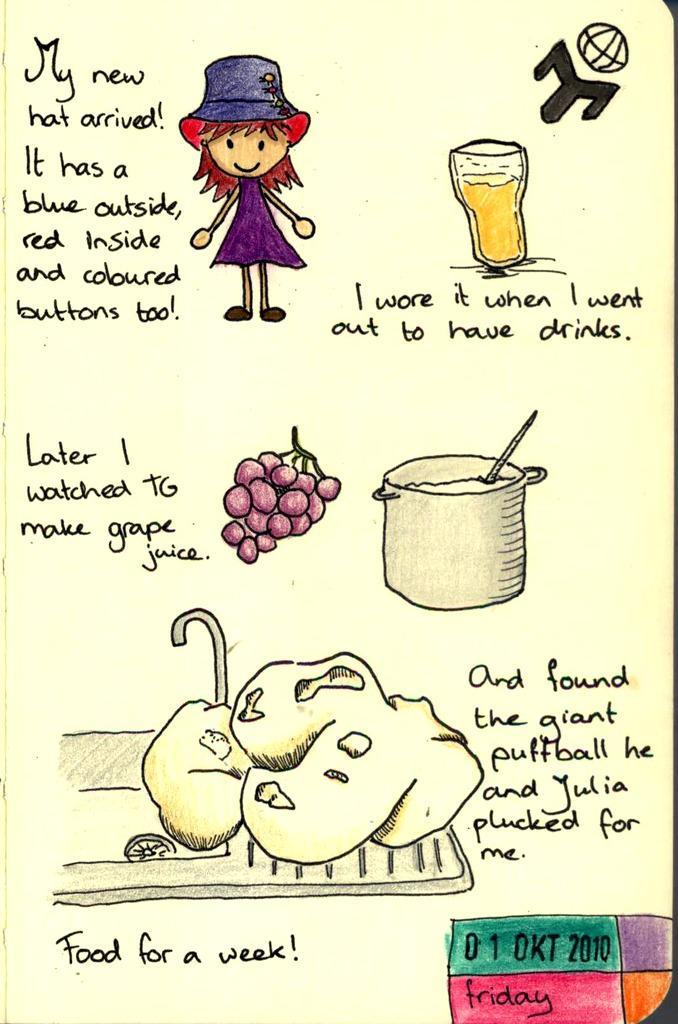 My new
hat arrived!
It has a
blue outside,
red inside
and coloured
buttons too!
I wore it when I went
out to have drinks.
Later I
watched TG
make grape
juice.
And found
the giant
puffball he
and Julia
plucked for
me.
Food for a week!
01 OKT 2010
friday